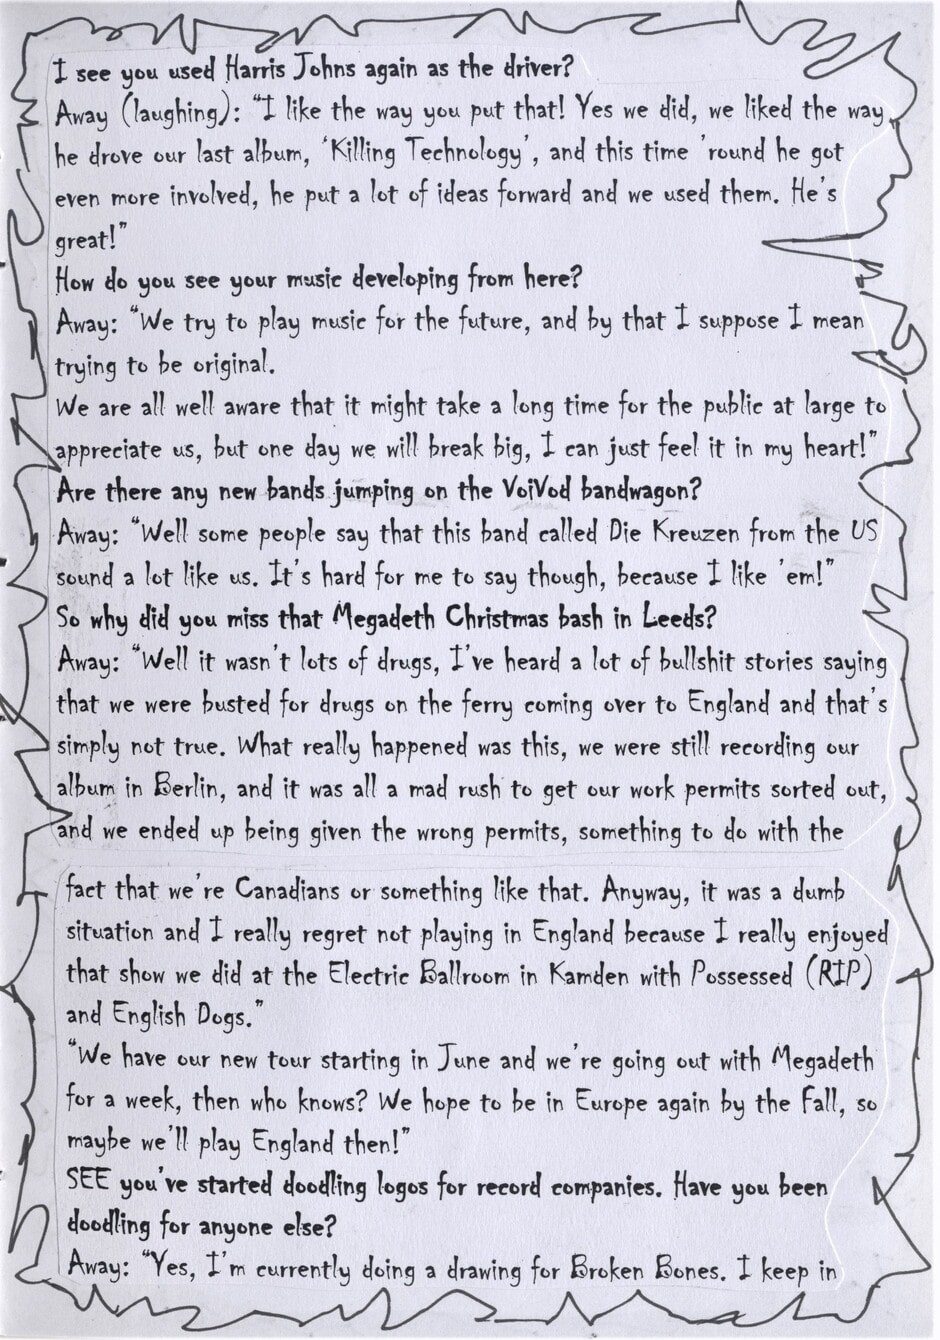 I see you used Harris Johns again as the driver?
Away (laughing): "I like the way you put that! Yes we did, we liked the way
he drove our last album, 'Killing Technology', and this time 'round he got
even more involved, he put a lot of ideas forward and we used them. He's
great!"
How do you see your music developing from here?
Away: "We try to play music for the future, and by that I suppose I mean
trying to be original.
We are all well aware that it might take a long time for the public at large to
appreciate us, but one day we will break big, I can just feel it in my heart!"
Are there any new bands jumping on the VoiVod bandwagon?
Away: "Well some people say that this band called Die Kreuzen from the US
sound a lot like us. It's hard for me to say though, because I like 'em!"
So why did you miss that Megadeth Christmas bash in Leeds?
Away: "Well it wasn't lots of drugs, I've heard a lot of bullshit stories saying
that we were busted for drugs on the ferry coming over to England and that's
simply not true. What really happened was this, we were still recording our
album in Berlin, and it was all a mad rush to get our work permits sorted out,
and we ended up being given the wrong permits, something to do with the
fact that we're Canadians or something like that. Anyway, it was a dumb
situation and I really regret not playing in England because I really enjoyed
that show we did at the Electric Ballroom in Kamden with Possessed (RIP)
and English Dogs."
"We have our new tour starting in June and we're going out with Megadeth
for a week, then who knows? We hope to be in Europe again by the Fall, so
maybe we'll play England then!"
SEE you've started doodling logos for record companies. Have you been
doodling for anyone else?
Away: "Yes, I'm currently doing a drawing for Broken Bones. I keep in